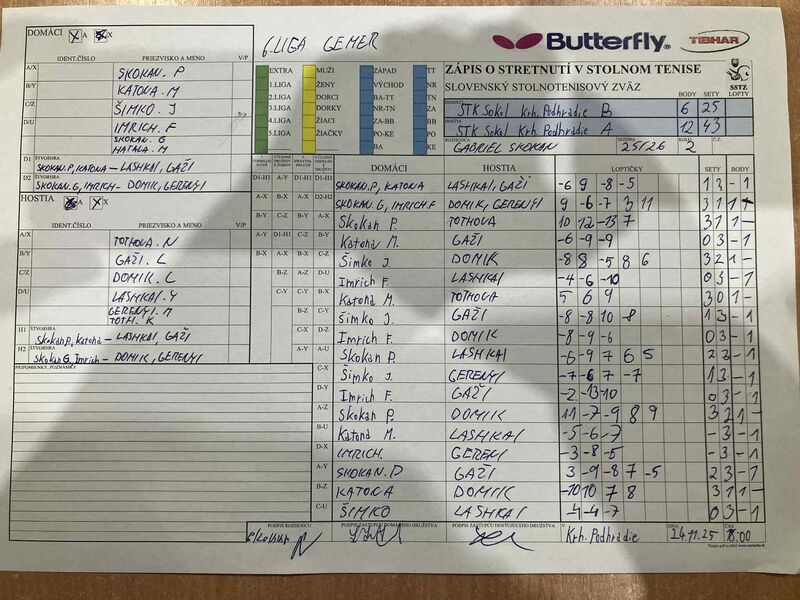 DOMÁCI X X
6.LIGA GEMER
Butterfly
TIBHAR
IDENT.ČÍSLO PRIEZVISKO A MENO V/P
A/X SKOKAN. P
B/Y KATONA. M
C/Z ŠIMKO. J
D/U IMRICH. F
SKOKAN. G
HATALA. M
D1 ŠTVORHRA
SKOKAN.P, KATONA – LASHKAI, GAŽI
D2 ŠTVORHRA
SKOKAN.G, IMRICH – DOMIK, GERENYI
HOSTIA X X
IDENT.ČÍSLO PRIEZVISKO A MENO V/P
A/X TOTHOVA. N
B/Y GAŽI. L
C/Z DOMIK. L
D/U LASHKAI. Y
GERENYI. M
TOTH. K
H1 ŠTVORHRA
Skokan P, Katona – LASHKAI, GAŽI
H2 ŠTVORHRA
Skokan G, Imrich – DOMIK, GERENYI
PRIPOMIENKY, POZNÁMKY
EXTRA MUŽI ZÁPAD TT
1.LIGA ŽENY VÝCHOD NR
2.LIGA DORCI BA-TT TN
3.LIGA DORKY NR-TN ZA
4.LIGA ŽIACI ZA-BB BB
5.LIGA ŽIAČKY PO-KE PO
BA KE
ZÁPIS O STRETNUTÍ V STOLNOM TENISE
SLOVENSKÝ STOLNOTENISOVÝ ZVÄZ
SSTZ
BODY SETY LOPTY
DOMÁCI STK Sokol Krh. Podhradie B 6 25
HOSTIA STK Sokol Krh. Podhradie A 12 43
ROZHODCA GABRIEL SKOKAN SEZÓNA 25/26 KOLO 2 Č.Z.
DOMÁCI HOSTIA LOPTIČKY SETY BODY
D1-H1 A-Y D1-H1 D1-H1 SKOKAN.P, KATONA LASHKAI, GAŽI -6 9 -8 -5 1 3 - 1
A-X B-X A-X D2-H2 SKOKAN.G, IMRICH.F DOMIK, GERENYI 9 -6 -7 3 11 3 1 1 -
B-Y C-Z B-Y A-X Skokan P. TOTHOVA 10 12 -13 7 3 1 1 -
A-Y D1-H1 C-Z B-Y Katona M. GAŽI -6 -9 -9 0 3 - 1
B-X A-X D1-H1 C-Z Šimko J. DOMIK -8 8 -5 8 6 3 2 1 -
B-Z A-Z D-U Imrich F. LASHKAI -4 -6 -10 0 3 - 1
C-Y C-Y B-X Katona M. TOTHOVA 5 6 9 3 0 1 -
B-Z C-Y Šimko J. GAŽI -8 -8 10 -8 1 3 - 1
C-X D-Z Imrich F. DOMIK -8 -9 -6 0 3 - 1
A-Y A-U Skokan P. LASHKAI -6 -9 7 6 5 2 3 - 1
C-X Šimko J. GERENYI -7 -6 7 -7 1 3 - 1
D-Y Imrich F. GAŽI -2 -13 -10 0 3 - 1
A-Z Skokan P. DOMIK 11 -7 -9 8 9 3 2 1 -
B-U Katona M. LASHKAI -5 -6 -7 - 3 - 1
D-X IMRICH. GERENYI -3 -8 -5 - 3 - 1
A-Y SKOKAN. P GAŽI 3 -9 -8 7 -5 2 3 - 1
B-Z KATONA DOMIK -10 10 7 8 3 1 1 -
C-U ŠIMKO LASHKAI -4 -4 -7 0 3 - 1
PODPIS ROZHODCU PODPIS ZÁSTUPCU DOMÁCEHO DRUŽSTVA PODPIS ZÁSTUPCU HOSŤUJÚCEHO DRUŽSTVA V Krh. Podhradie DŇA 24.11.25 ČAS 18:00